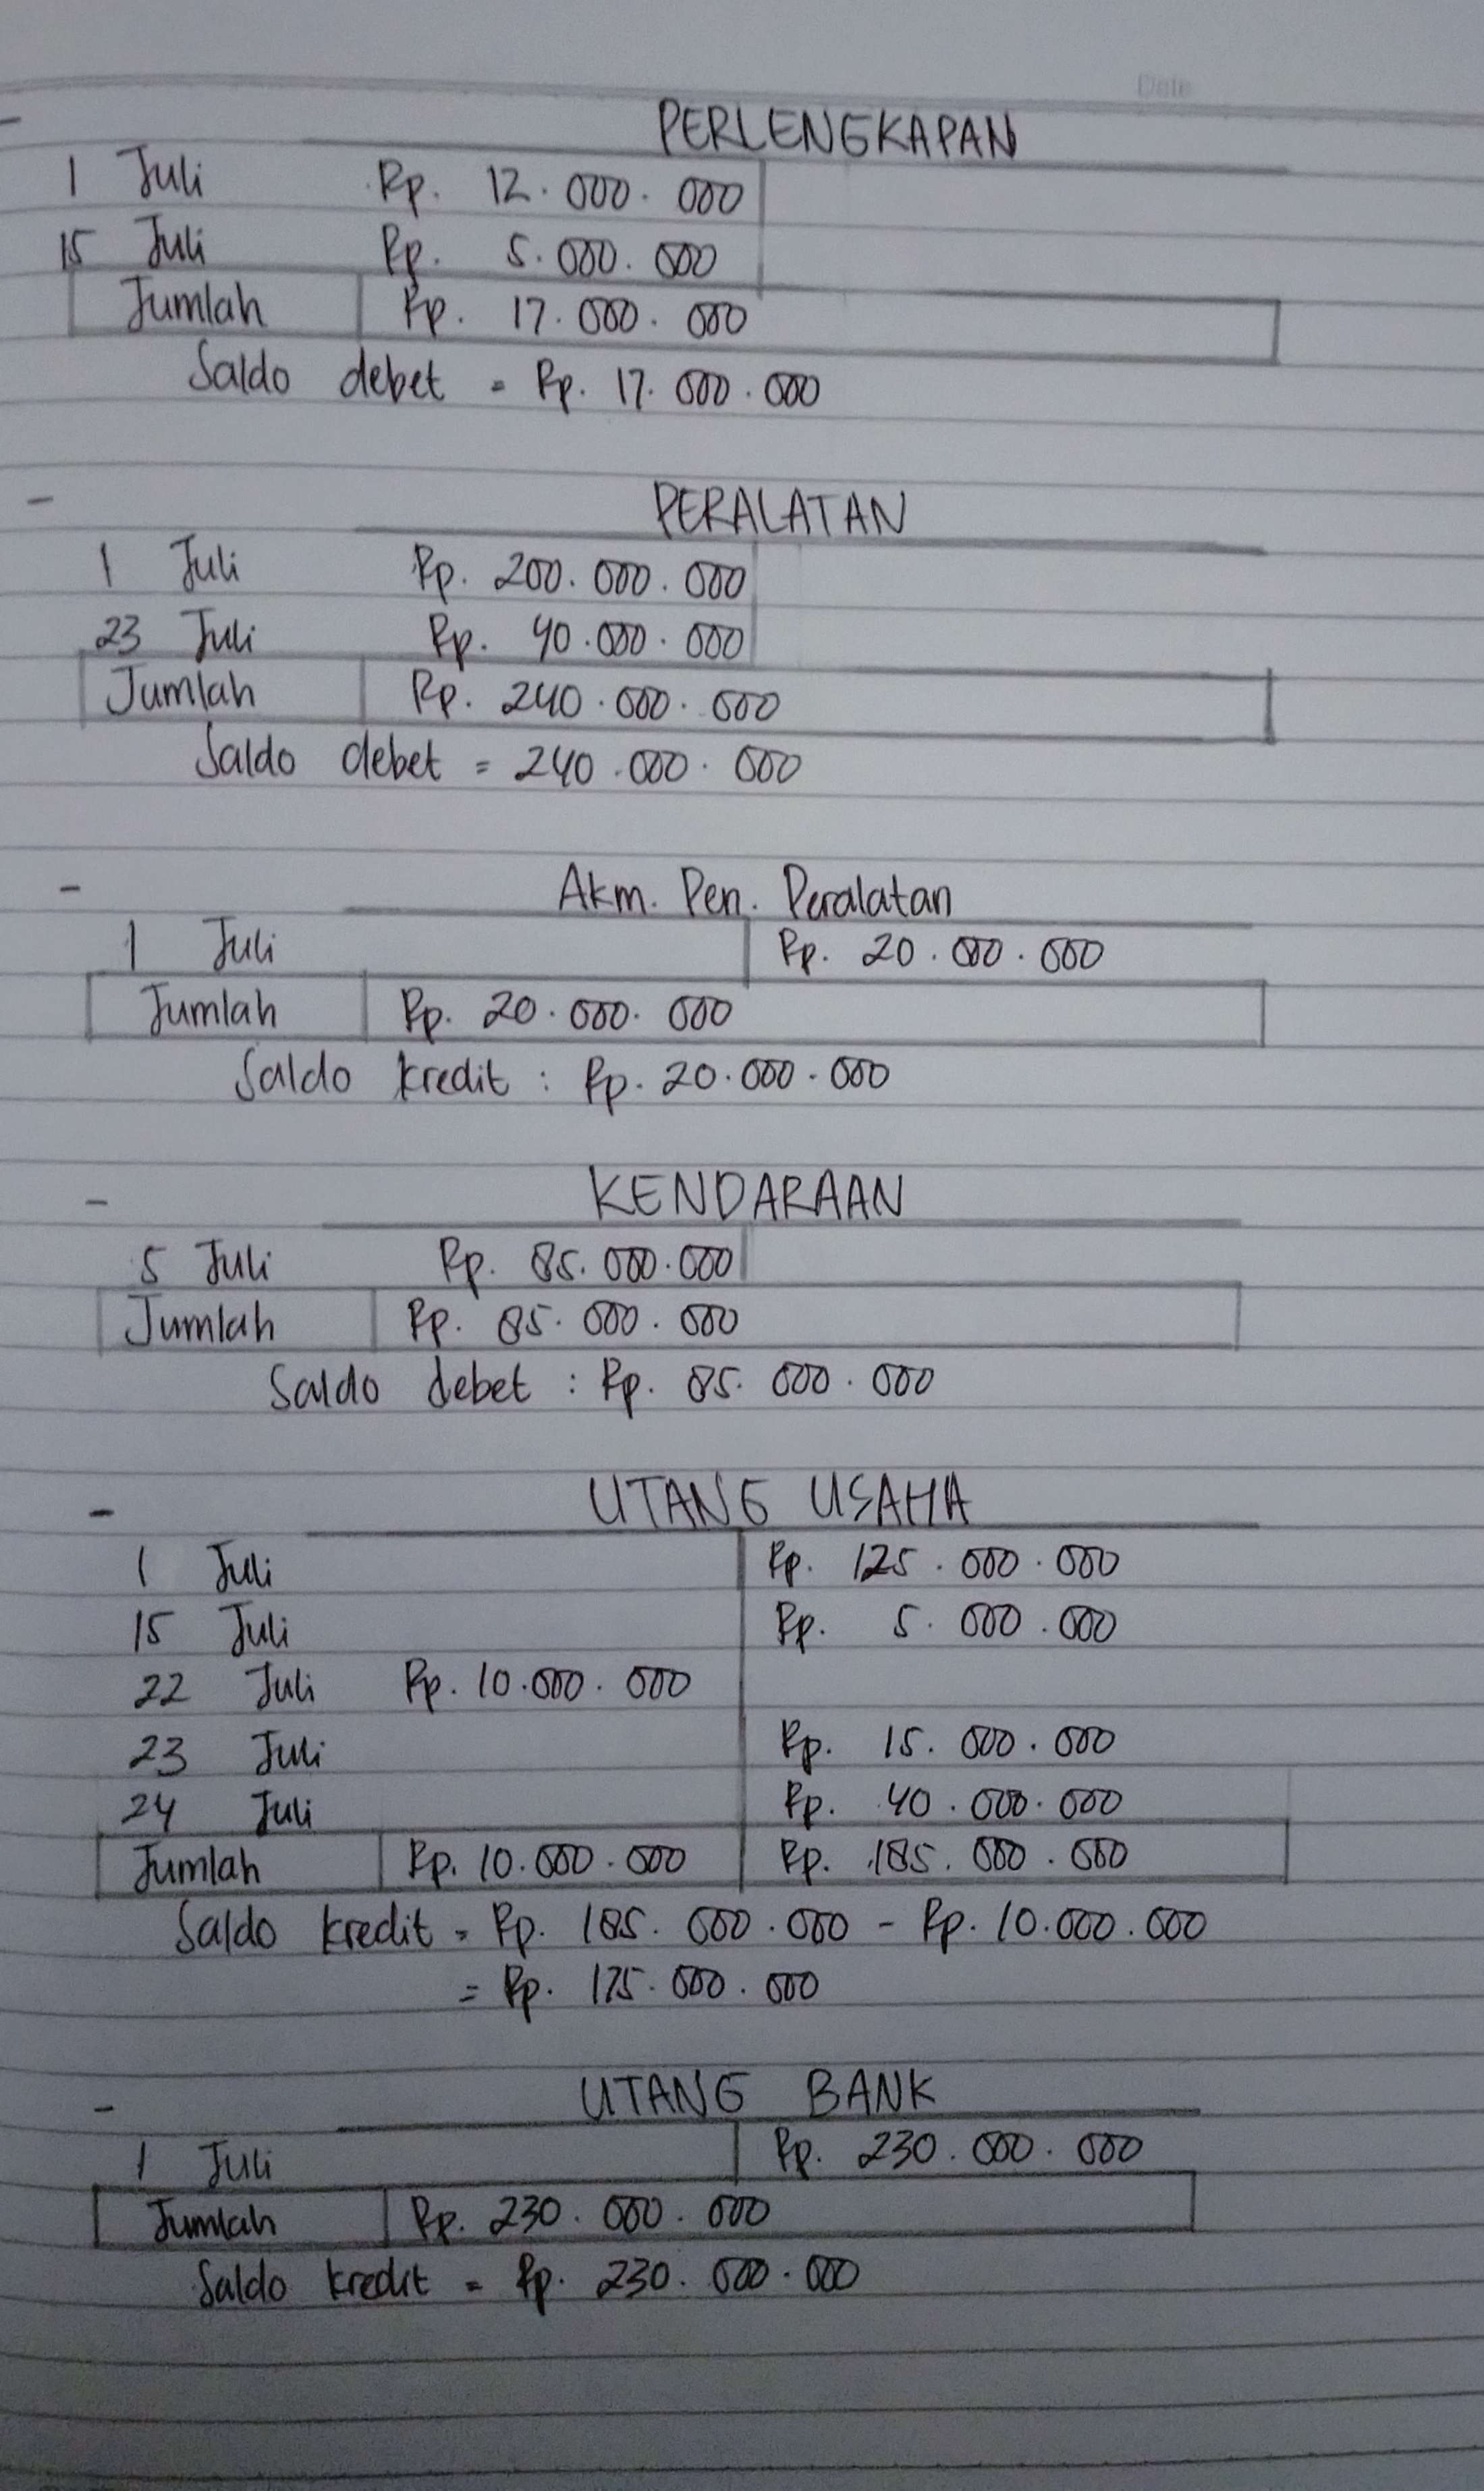 Date
PERLENGKAPAN
1 Juli Rp. 12.000.000
15 Juli Rp. 5.000.000
Jumlah Rp. 17.000.000
Saldo debet = Rp. 17.000.000
- PERALATAN
1 Juli Rp. 200.000.000
23 Juli Rp. 40.000.000
Jumlah Rp. 240.000.000
Saldo debet = 240.000.000
- Akm. Pen. Peralatan
1 Juli Rp. 20.000.000
Jumlah Rp. 20.000.000
Saldo kredit : Rp. 20.000.000
- KENDARAAN
5 Juli Rp. 85.000.000
Jumlah Rp. 85.000.000
Saldo debet : Rp. 85.000.000
- UTANG USAHA
1 Juli Rp. 125.000.000
15 Juli Rp. 5.000.000
22 Juli Rp. 10.000.000
23 Juli Rp. 15.000.000
24 Juli Rp. 40.000.000
Jumlah Rp. 10.000.000 Rp. 185.000.000
Saldo kredit = Rp. 185.000.000 - Rp. 10.000.000
= Rp. 175.000.000
- UTANG BANK
1 Juli Rp. 230.000.000
Jumlah Rp. 230.000.000
Saldo kredit = Rp. 230.000.000